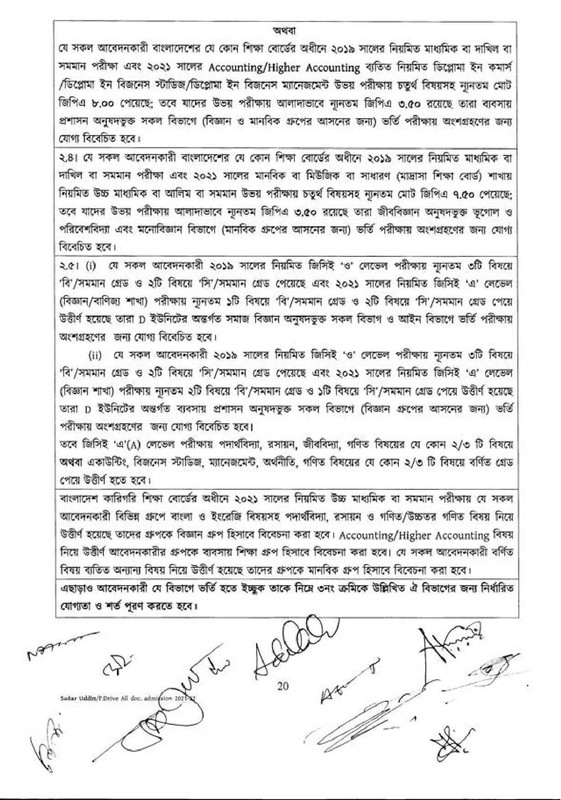 অথবা
যে সকল আবেদনকারী বাংলাদেশের যে কোন শিক্ষা বোর্ডের অধীনে ২০১৯ সালের নিয়মিত মাধ্যমিক বা দাখিল বা
সমমান পরীক্ষা এবং ২০২১ সালের Accounting/Higher Accounting ব্যতিত নিয়মিত ডিপ্লোমা ইন কমার্স
/ডিপ্লোমা ইন বিজনেস স্টাডিজ/ডিপ্লোমা ইন বিজনেস ম্যানেজমেন্ট উভয় পরীক্ষায় চতুর্থ বিষয়সহ ন্যূনতম মোট
জিপিএ ৮.০০ পেয়েছে; তবে যাদের উভয় পরীক্ষায় আলাদাভাবে ন্যূনতম জিপিএ ৩.৫০ রয়েছে তারা ব্যবসায়
প্রশাসন অনুষদভুক্ত সকল বিভাগে (বিজ্ঞান ও মানবিক গ্রুপের আসনের জন্য) ভর্তি পরীক্ষায় অংশগ্রহণের জন্য
যোগ্য বিবেচিত হবে।
২.৪। যে সকল আবেদনকারী বাংলাদেশের যে কোন শিক্ষা বোর্ডের অধীনে ২০১৯ সালের নিয়মিত মাধ্যমিক বা
দাখিল বা সমমান পরীক্ষা এবং ২০২১ সালের মানবিক বা মিউজিক বা সাধারণ (মাদ্রাসা শিক্ষা বোর্ড) শাখায়
নিয়মিত উচ্চ মাধ্যমিক বা আলিম বা সমমান উভয় পরীক্ষায় চতুর্থ বিষয়সহ ন্যূনতম মোট জিপিএ ৭.৫০ পেয়েছে;
তবে যাদের উভয় পরীক্ষায় আলাদাভাবে ন্যূনতম জিপিএ ৩.৫০ রয়েছে তারা জীববিজ্ঞান অনুষদভুক্ত ভূগোল ও
পরিবেশবিদ্যা এবং মনোবিজ্ঞান বিভাগে (মানবিক গ্রুপের আসনের জন্য) ভর্তি পরীক্ষায় অংশগ্রহণের জন্য যোগ্য
বিবেচিত হবে।
২.৫। (i) যে সকল আবেদনকারী ২০১৯ সালের নিয়মিত জিসিই ‘ও’ লেভেল পরীক্ষায় ন্যূনতম ৩টি বিষয়ে
‘বি’/সমমান গ্রেড ও ২টি বিষয়ে ‘সি’/সমমান গ্রেড পেয়েছে এবং ২০২১ সালের নিয়মিত জিসিই ‘এ’ লেভেল
(বিজ্ঞান/বাণিজ্য শাখা) পরীক্ষায় ন্যূনতম ১টি বিষয়ে ‘বি’/সমমান গ্রেড ও ২টি বিষয়ে ‘সি’/সমমান গ্রেড পেয়ে
উত্তীর্ণ হয়েছে তারা D ইউনিটের অন্তর্গত সমাজ বিজ্ঞান অনুষদভুক্ত সকল বিভাগ ও আইন বিভাগে ভর্তি পরীক্ষায়
অংশগ্রহণের জন্য যোগ্য বিবেচিত হবে।
(ii) যে সকল আবেদনকারী ২০১৯ সালের নিয়মিত জিসিই ‘ও’ লেভেল পরীক্ষায় ন্যূনতম ৩টি বিষয়ে
‘বি’/সমমান গ্রেড ও ২টি বিষয়ে ‘সি’/সমমান গ্রেড পেয়েছে এবং ২০২১ সালের নিয়মিত জিসিই ‘এ’ লেভেল
(বিজ্ঞান শাখা) পরীক্ষায় ন্যূনতম ২টি বিষয়ে ‘বি’/সমমান গ্রেড ও ১টি বিষয়ে ‘সি’/সমমান গ্রেড পেয়ে উত্তীর্ণ হয়েছে
তারা D ইউনিটের অন্তর্গত ব্যবসায় প্রশাসন অনুষদভুক্ত সকল বিভাগে (বিজ্ঞান গ্রুপের আসনের জন্য) ভর্তি
পরীক্ষায় অংশগ্রহণের জন্য যোগ্য বিবেচিত হবে।
তবে জিসিই ‘এ’(A) লেভেল পরীক্ষায় পদার্থবিদ্যা, রসায়ন, জীববিদ্যা, গণিত বিষয়ের যে কোন ২/৩ টি বিষয়ে
অথবা একাউন্টিং, বিজনেস স্টাডিজ, ম্যানেজমেন্ট, অর্থনীতি, গণিত বিষয়ের যে কোন ২/৩ টি বিষয়ে বর্ণিত গ্রেড
পেয়ে উত্তীর্ণ হতে হবে।
বাংলাদেশ কারিগরি শিক্ষা বোর্ডের অধীনে ২০২১ সালের নিয়মিত উচ্চ মাধ্যমিক বা সমমান পরীক্ষায় যে সকল
আবেদনকারী বিভিন্ন গ্রুপে বাংলা ও ইংরেজি বিষয়সহ পদার্থবিদ্যা, রসায়ন ও গণিত/উচ্চতর গণিত বিষয় নিয়ে
উত্তীর্ণ হয়েছে তাদের গ্রুপকে বিজ্ঞান গ্রুপ হিসাবে বিবেচনা করা হবে। Accounting/Higher Accounting বিষয়
নিয়ে উত্তীর্ণ আবেদনকারীর গ্রুপকে ব্যবসায় শিক্ষা গ্রুপ হিসাবে বিবেচনা করা হবে। যে সকল আবেদনকারী বর্ণিত
বিষয় ব্যতিত অন্যান্য বিষয় নিয়ে উত্তীর্ণ হয়েছে তাদের গ্রুপকে মানবিক গ্রুপ হিসাবে বিবেচনা করা হবে।
এছাড়াও আবেদনকারী যে বিভাগে ভর্তি হতে ইচ্ছুক তাকে নিম্নে ৩নং ক্রমিকে উল্লিখিত ঐ বিভাগের জন্য নির্ধারিত
যোগ্যতা ও শর্ত পূরণ করতে হবে।
20
Sadar Uddin/F:Drive All doc. admission 2021-22